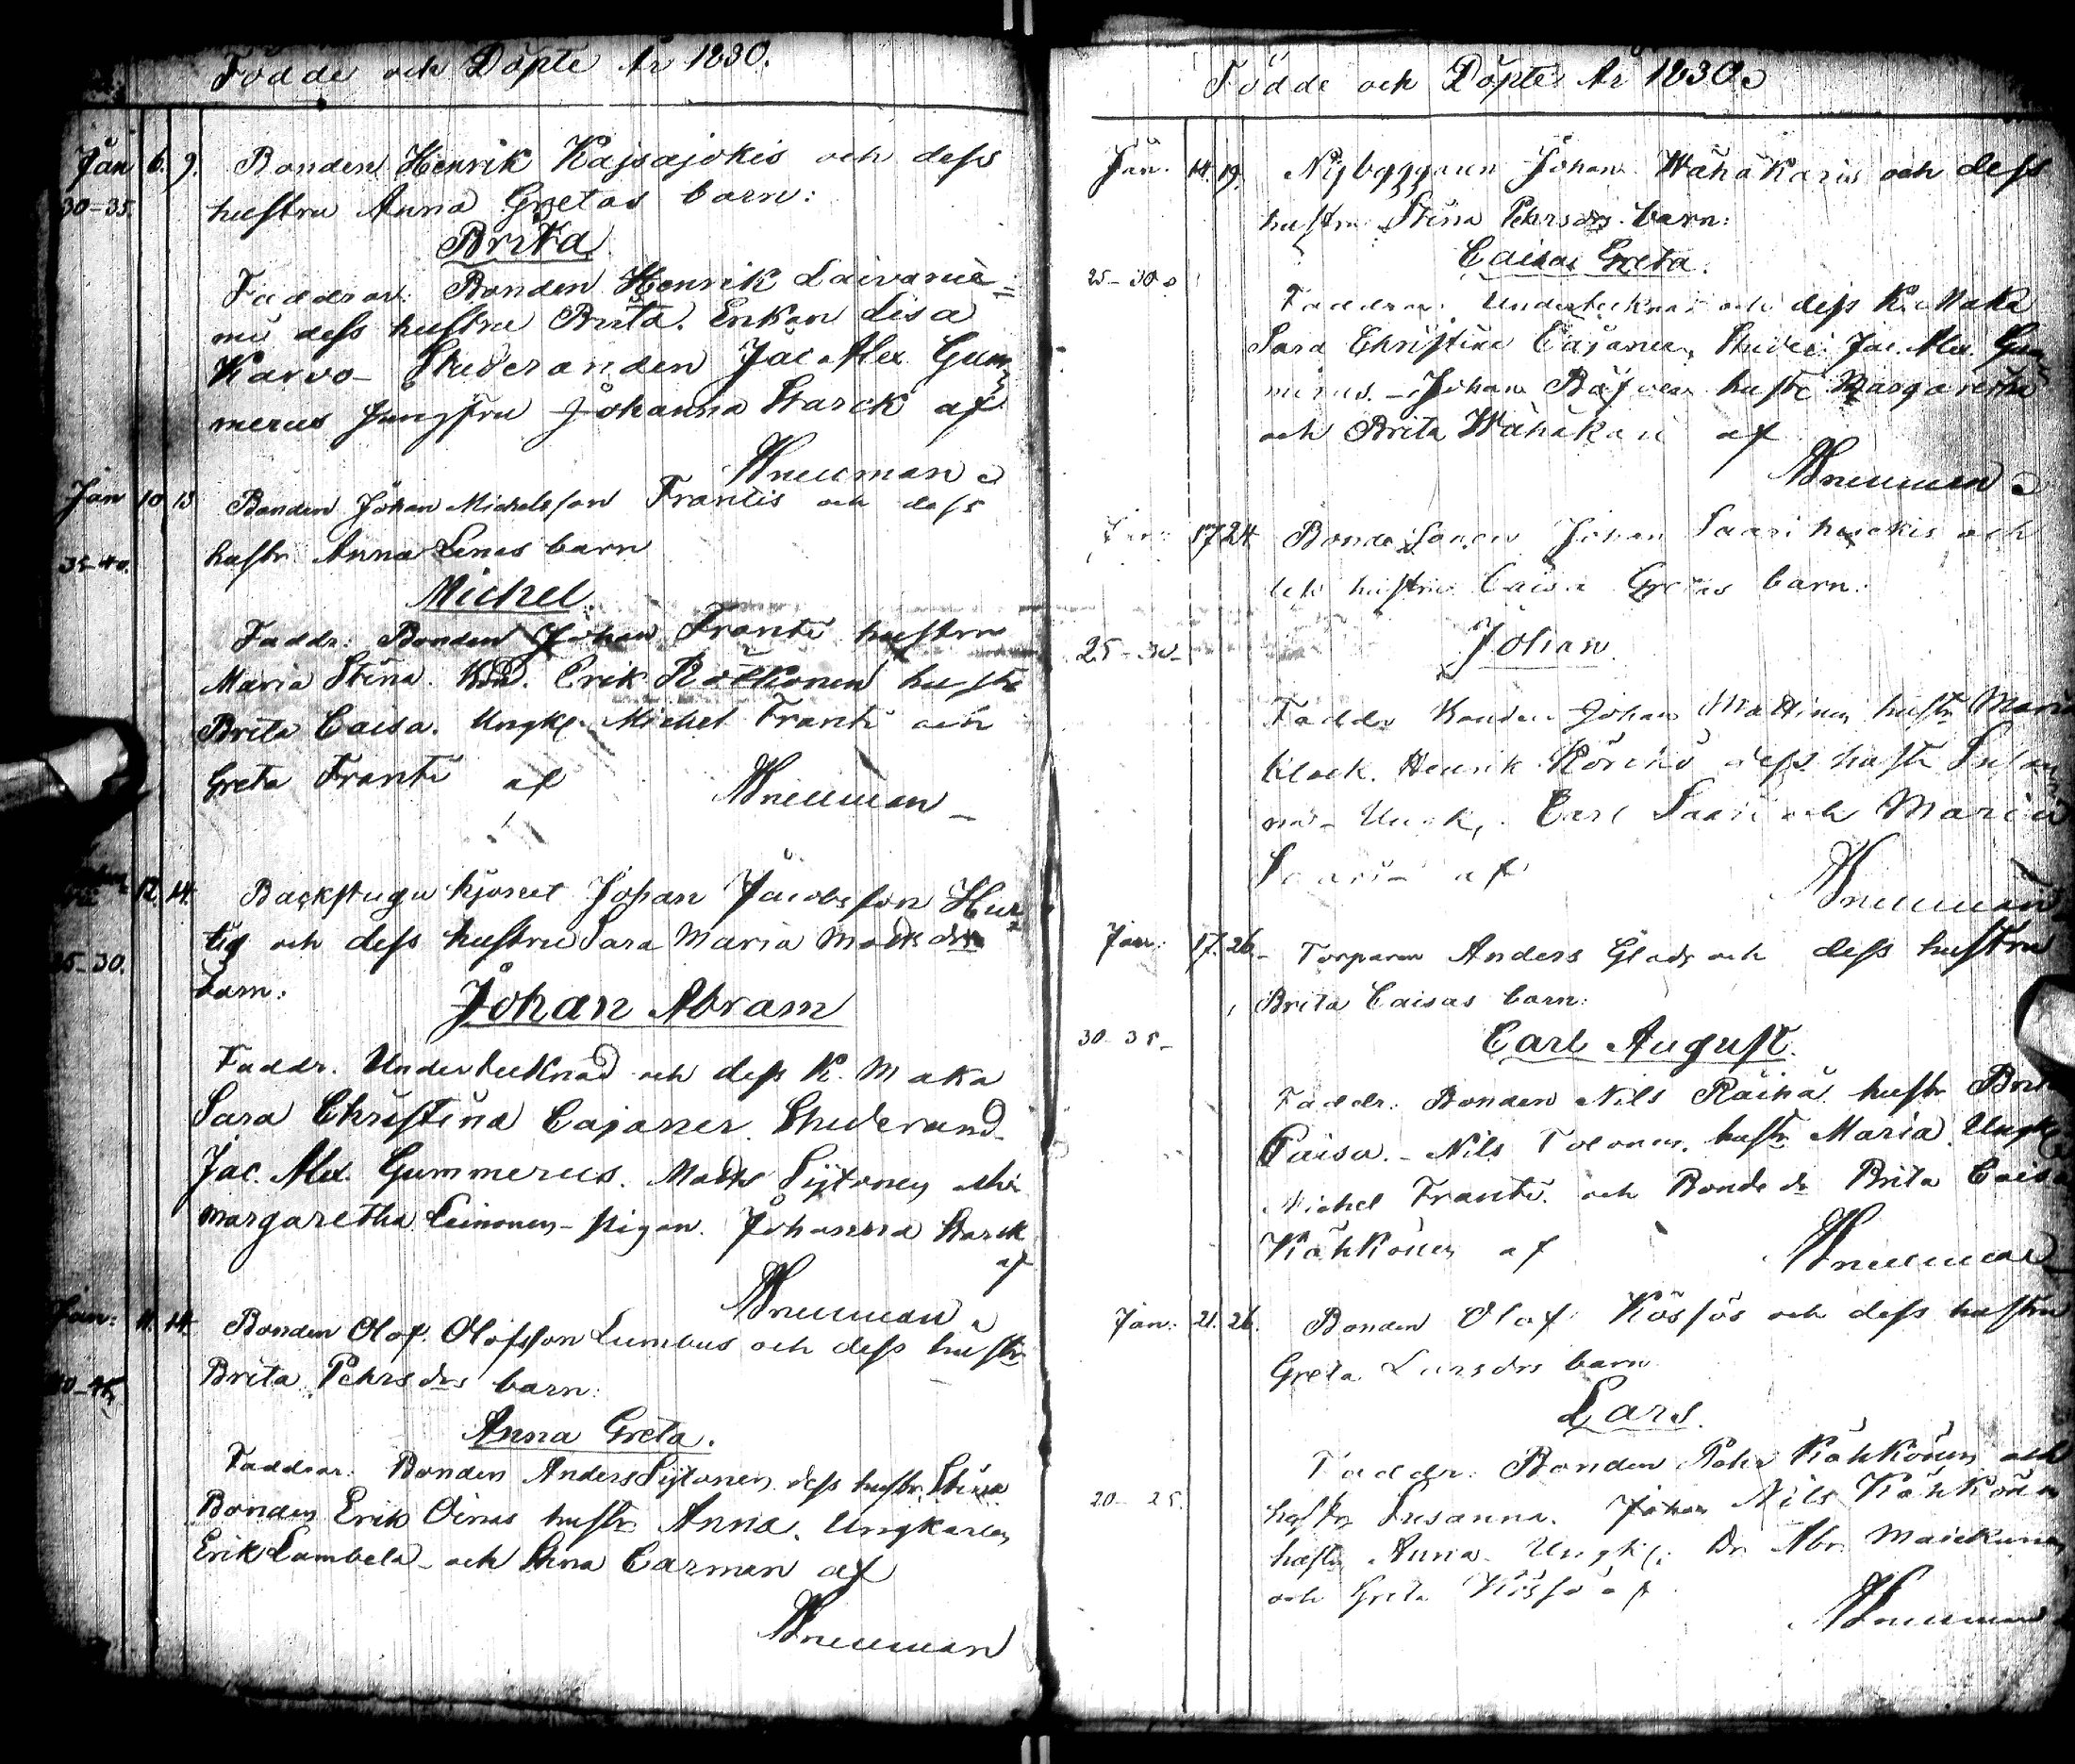 Födde och Döpte År 1830.
Jan 6. 9. Bonden Henrik Kajsajokis och dess
30-35. hustru Anna Gretas barn:
Brita
Faddrar: Bonden Henrik Laivanie=
mi dess hustru Brita. Enkan Lisa
Karvo- Studeranden Jac. Alex. Gum=
merus Jungfru Johanna Starck af
Neuman
Jan 10 13 Bonden Johan Michelsson Frantis och dess
35-40. hustr Anna Lenas barn
Michel.
Faddr: Bonden Johan Franti hustru
Maria Stina. Erik Rötkönen hustr
Brita Caisa. Ungk. Michel Franti och
Greta Franti af
Neuman
12. 14. Backstugu hjonet Johan Jacobsson Hur=
tig och dess hustru Sara Maria Matts drs
25-30. barn:
Johan Abram
Faddr. Undertecknad och dess K. Maka
Sara Christina Cajaner. Studerand.
Jac. Alex. Gummerus. Matts Sijtonen
Margaretha Leinonen - pigan. Johanna Starck
af
Neuman
Jan: 11. 14. Bonden Olof Olofsson Lumbus och dess hustr
40-45 Brita Pehrs drs barn:
Anna Greta.
Faddrar: Bonden Anders Sijtonen dess hustr. Stina
Bonden Erik Oinas hustr Anna. Ungkarlen
Erik Lumbela - och Stina Carman af
Neuman
Födde och Döpte År 1830.
Jan. 14. 19. Nybyggaren Johan Wähäkaris och dess
hustru Stina Pehrsdrs barn:
Caisa Greta.
25-30
Faddrar: Undertecknad och dess K. Maka
Sara Christina Cajaner, Studer: Jac. Alex. Gum=
merus. - Johan hustr Margaretha
och Brita Wähäkari af
Neuman
Jan: 17 24. Bonde Sonen Johan Saari och
dess hustru Caisa Gretas barn:
Johan
25-30-
Faddr Bonden Johan Mattinen hustr Maria
Klock. Henrik Körkkö dess hustr Susan=
na - Ungk. Carl Saari och Maria
Saari - af
Neuman
Jan: 17. 26. Torparen Anders Glads och dess hustru
Brita Caisas barn:
30-35- Carl August.
Faddr: Bonden Nils Räihä hustr Brita
Caisa. - Nils Tolonen, hustr Maria. Ungk.
Michel Franti. och Bonde dr Brita Caisa
Kähkönen af
Neuman
Jan: 21. 26. Bonden Olof Kössös och dess hustru
Greta Larsdrs barn
Lars.
Faddr: Bonden Pehr Kähkönen och
20-25. hustr Susanna. Johan Nils Kähkönen
hustr Anna. Ungk. Dr. Abr.
och Greta Kössö af
Neuman